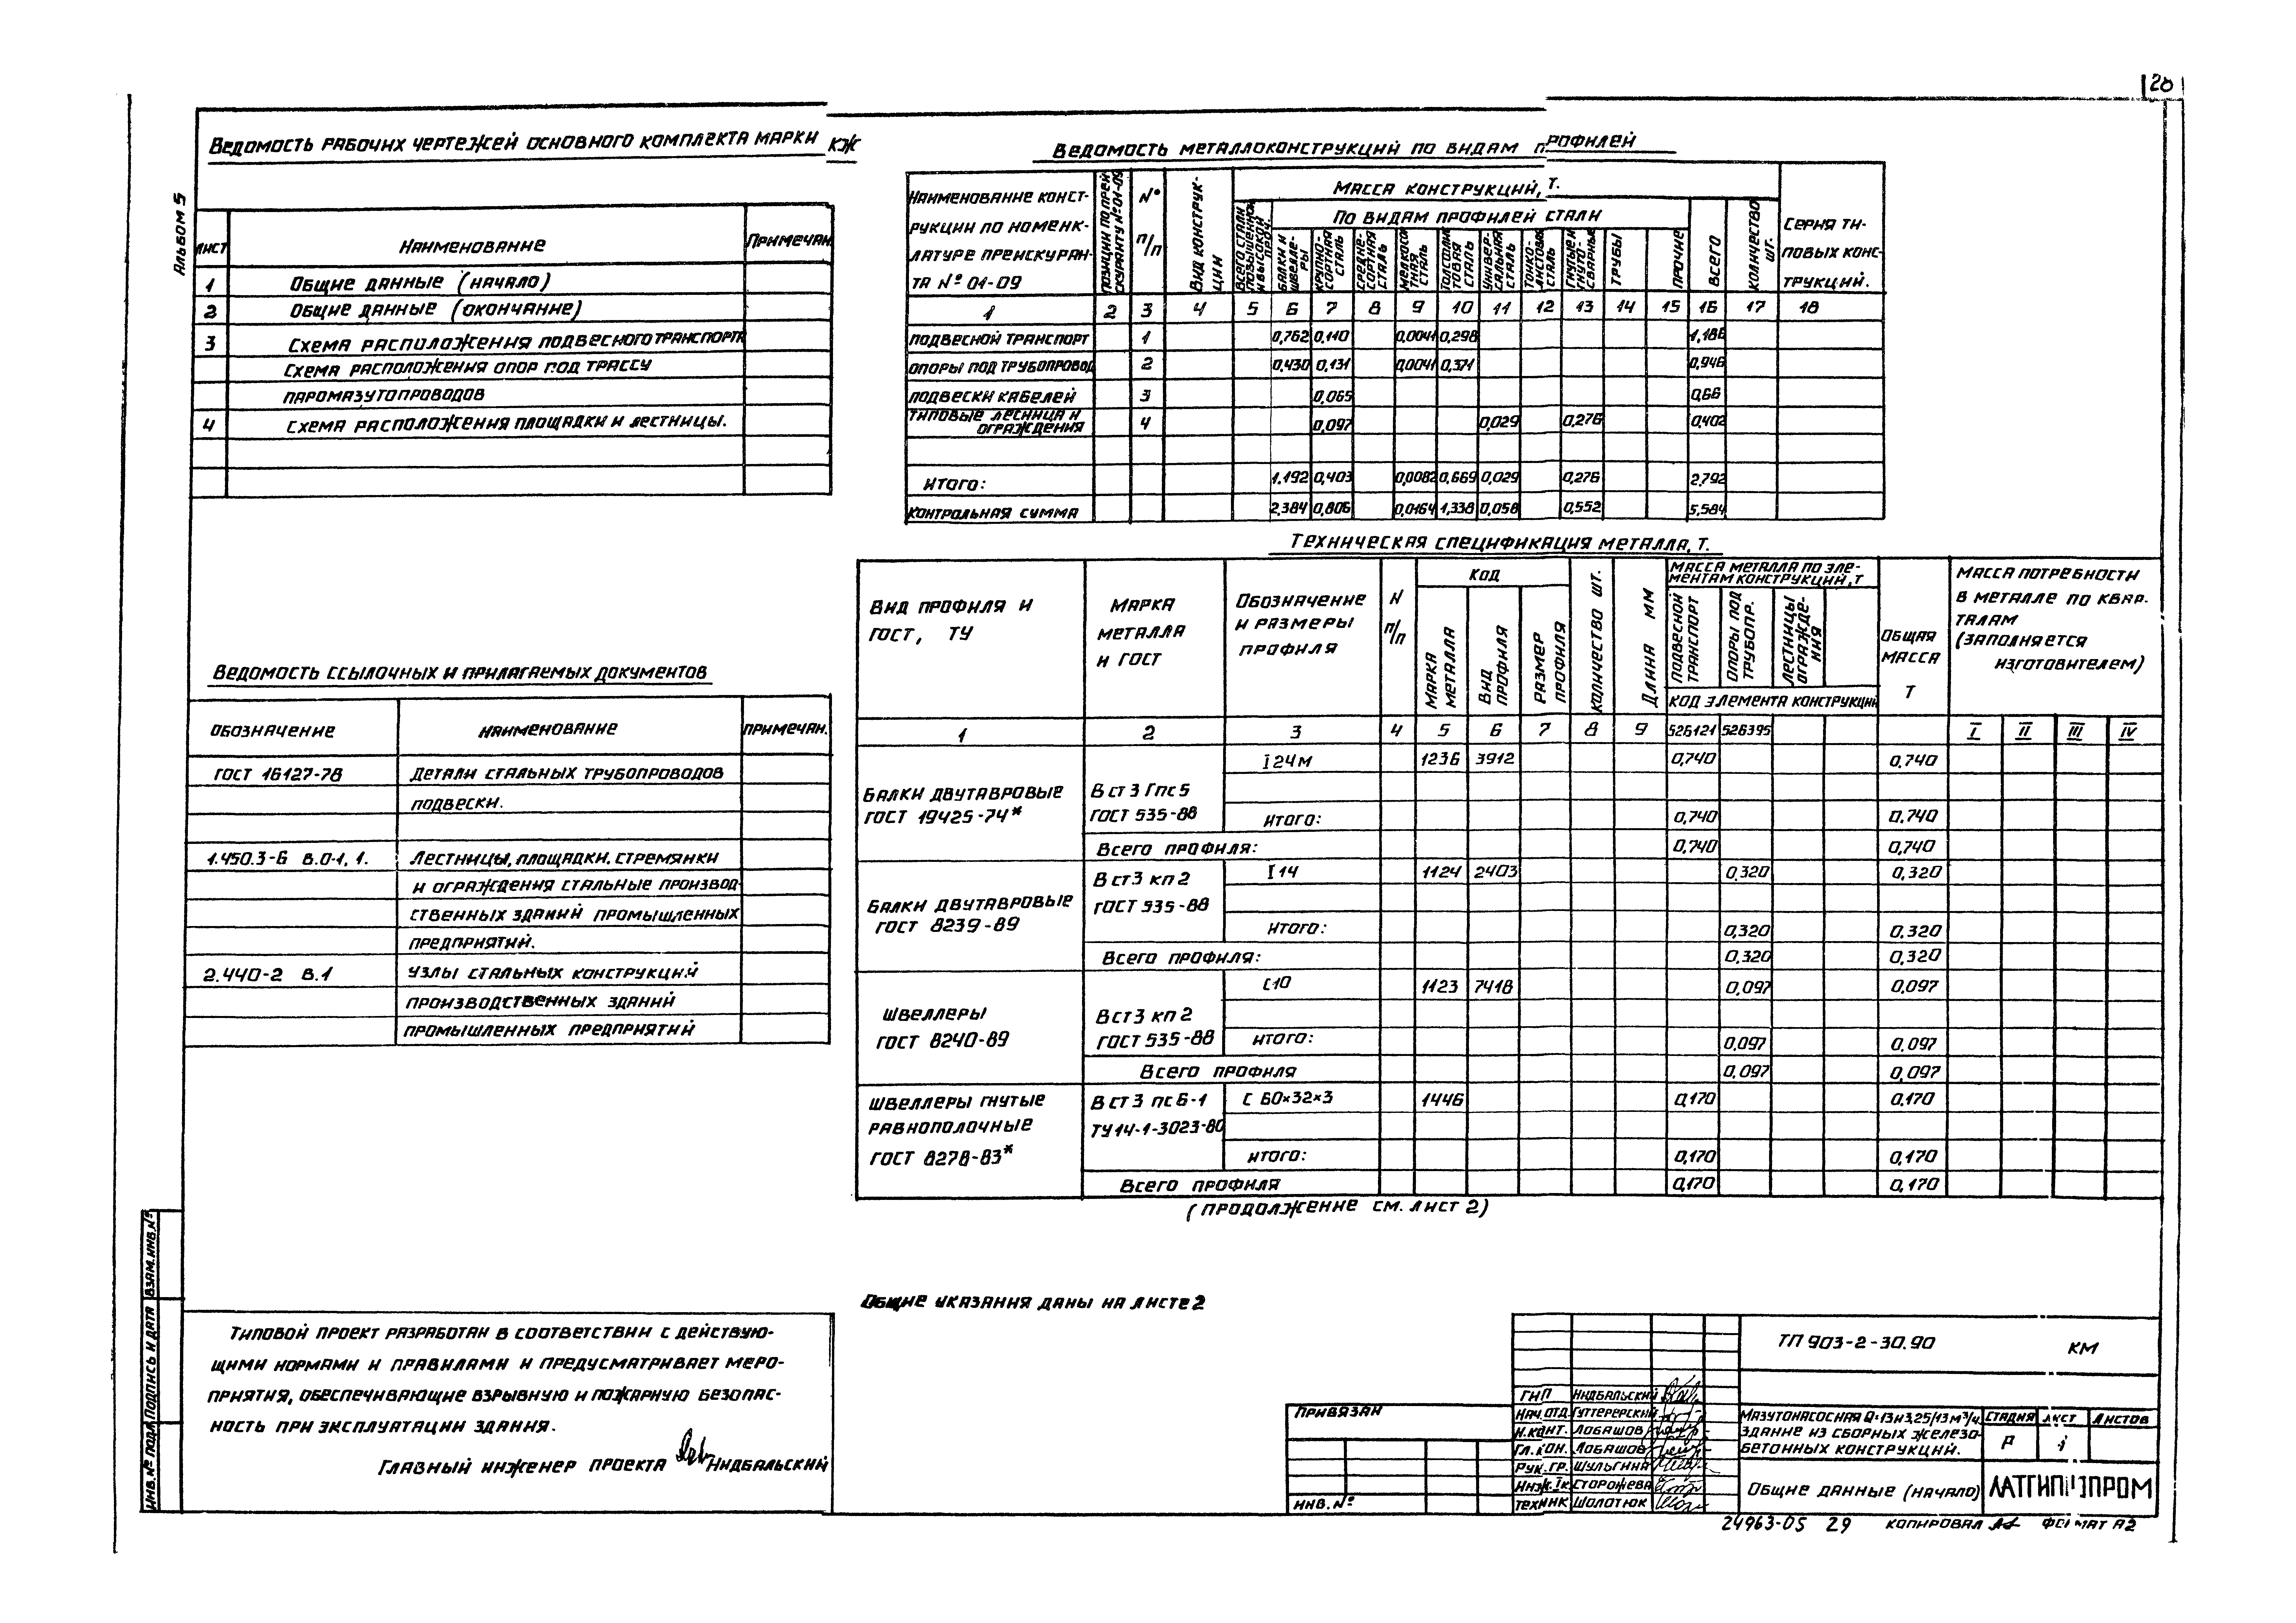 28
Альбом 5
Ведомость рабочих чертежей основного комплекта марки КЖ
Лист | Наименование | Примечан.
1 | Общие данные (начало)
2 | Общие данные (окончание)
3 | Схема расположения подвесного транспорта
Схема расположения опор под трассу
паромазутопроводов
4 | Схема расположения площадки и лестницы.
Ведомость ссылочных и прилагаемых документов
Обозначение | Наименование | Примечан.
ГОСТ 16127-78 | Детали стальных трубопроводов
подвески.
1.450.3-6 в.0-1, 1. | Лестницы, площадки, стремянки
и ограждения стальные производ-
ственных зданий промышленных
предприятий.
2.440-2 в.1 | Узлы стальных конструкций
производственных зданий
промышленных предприятий
Типовой проект разработан в соответствии с действую-
щими нормами и правилами и предусматривает меро-
приятия, обеспечивающие взрывную и пожарную безопас-
ность при эксплуатации здания.
Главный инженер проекта Нидбальский
Ведомость металлоконструкций по видам профилей
Наименование конст-
рукции по номенк-
латуре прейскуран-
та №01-09
Позиции по прей-
скуранту №01-09
№ п/п
Вид конструк-
ции
Масса конструкций, т.
Всего стали повышенной и высокой проч.
По видам профилей стали
Балки и швелле-
ры
Крупно-
сортная сталь
Средне-
сортная сталь
Мелкосо-
тная сталь
Толстолис-
товая сталь
Универ-
сальная сталь
Тонко-
листовая сталь
Гнутые и гнуто-
сварные
Трубы
Прочие
Всего
Количество шт.
Серия ти-
повых конс-
трукций.
1 | 2 | 3 | 4 | 5 | 6 | 7 | 8 | 9 | 10 | 11 | 12 | 13 | 14 | 15 | 16 | 17 | 18
Подвесной транспорт | 1 | 0,762 | 0,110 | 0,0041 | 0,298 | 1,186
Опоры под трубопровод | 2 | 0,430 | 0,131 | 0,0041 | 0,371 | 0,946
Подвески кабелей | 3 | 0,065 | 0,66
Типовые лесница и
ограждения | 4 | 0,097 | 0,029 | 0,276 | 0,402
Итого: | 1.192 | 0,403 | 0,0082 | 0,669 | 0,029 | 0,276 | 2,792
Контрольная сумма | 2,384 | 0,806 | 0,0164 | 1,338 | 0,058 | 0,552 | 5,584
Техническая спецификация металла, т.
Вид профиля и
ГОСТ, ТУ
Марка
металла
и ГОСТ
Обозначение
и размеры
профиля
N п/п
Код
Марка металла
Вид профиля
Размер профиля
Количество шт.
Длина мм
Масса металла по эле-
ментам конструкций, т
Подвесной транспорт
Опоры под трубопр.
Лестницы огражде-
ния
Код элемента конструкции
Общая
масса
т
Масса потребности
в металле по квар-
талам
(заполняется
изготовителем)
1 | 2 | 3 | 4 | 5 | 6 | 7 | 8 | 9 | 526121 | 526395 | I | II | III | IV
Балки двутавровые
ГОСТ 19425-74*
В ст 3 Гпс 5
ГОСТ 535-88
I 24м | 1236 | 3912 | 0,740 | 0,740
Итого: | 0,740 | 0,740
Всего профиля: | 0,740 | 0,740
Балки двутавровые
ГОСТ 8239-89
В ст3 кп 2
ГОСТ 535-88
I 14 | 1124 | 2403 | 0,320 | 0,320
Итого: | 0,320 | 0,320
Всего профиля: | 0,320 | 0,320
Швеллеры
ГОСТ 8240-89
В ст3 кп 2
ГОСТ 535-88
С10 | 1123 | 7418 | 0,097 | 0,097
Итого: | 0,097 | 0,097
Всего профиля | 0,097 | 0,097
Швеллеры гнутые
равнополочные
ГОСТ 8278-83*
В ст 3 пс 6-1
ТУ 14-1-3023-80
С 60×32×3 | 1446 | 0,170 | 0,170
Итого: | 0,170 | 0,170
Всего профиля | 0,170 | 0,170
(продолжение см. лист 2)
Общие указания даны на листе 2
Взам.инв.№
Подпись и дата
Инв.№ подл.
Привязан
Инв.№
ТП 903-2-30.90 КМ
ГИП | Нидбальский
Нач.отд. | Гуттерерский
Н.конт. | Лобашов
Гл.кон. | Лобашов
Рук.гр. | Шульгина
Инж.Iк. | Сторожева
Техник | Шолотюк
Мазутонасосная Q=13и3,25/13 м³/ч.
Здание из сборных железо-
бетонных конструкций.
Стадия | Лист | Листов
Р | 1
Общие данные (начало)
ЛАТГИПРОПРОМ
24963-05 29 Копировал Формат А2